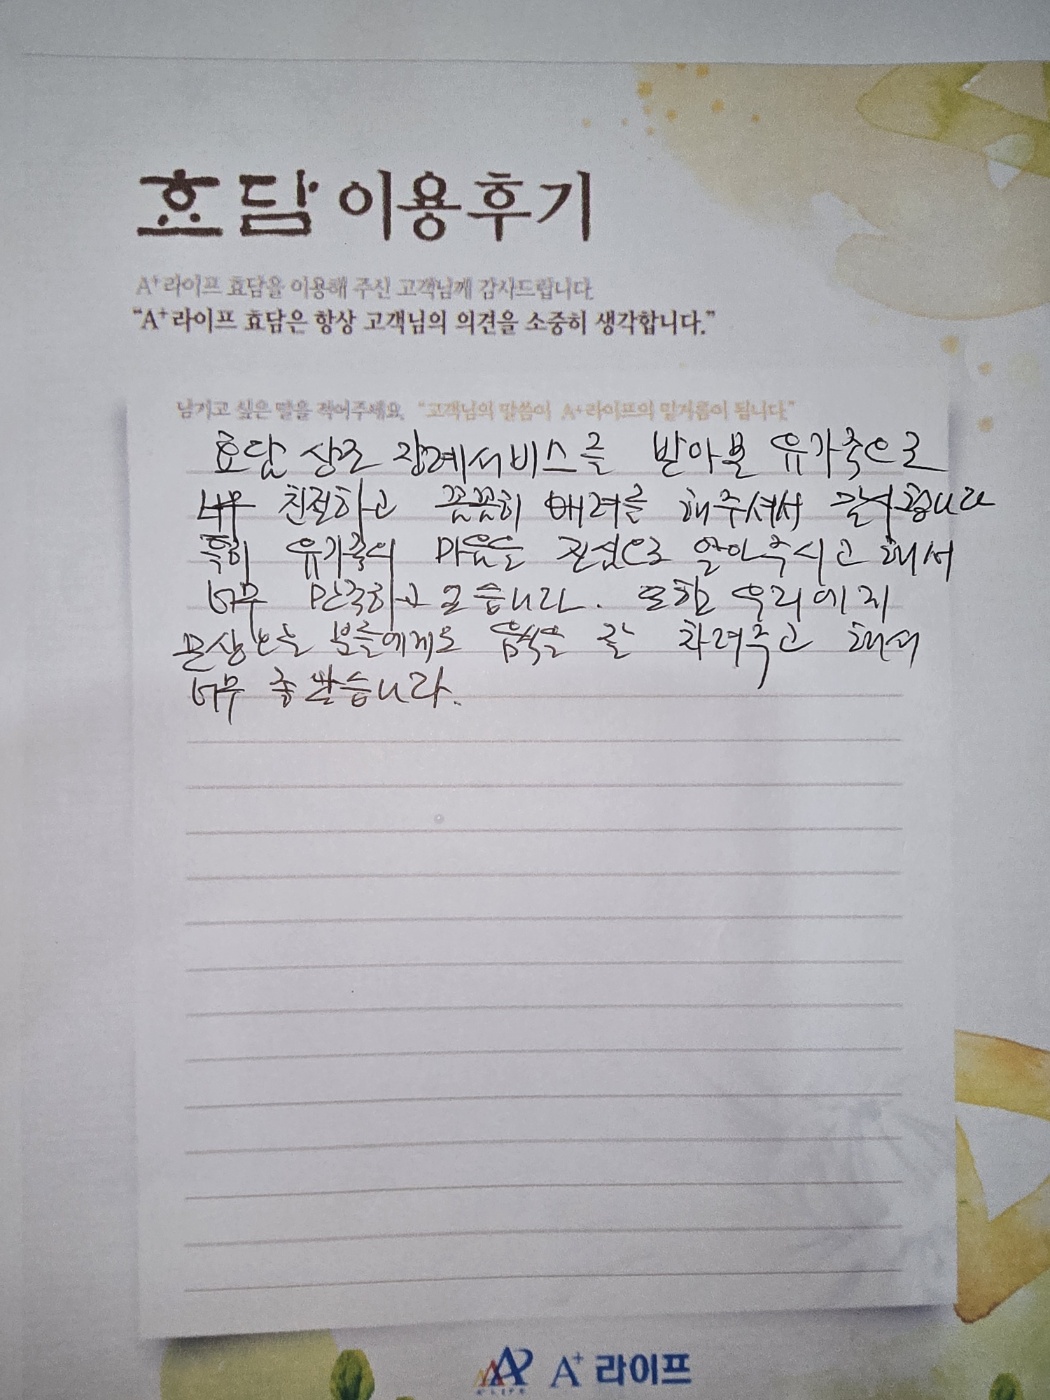 효담 이용후기
A+라이프 효담을 이용해 주신 고객님께 감사드립니다.
"A+라이프 효담은 항상 고객님의 의견을 소중히 생각합니다."
남기고 싶은 말을 적어주세요. "고객님의 말씀이 A+라이프의 밑거름이 됩니다."
효담 상조 장례서비스를 받아본 유가족으로
너무 친절하고 꼼꼼히 배려를 해주셔서
특히 유가족의 마음을 진심으로 알아주시고 해서
너무 만족하고 있습니다. 또한 우리에지
문상오는 분들에게도 음식을 잘 차려주고 해서
너무 좋았습니다.
A+LIFE A+ 라이프